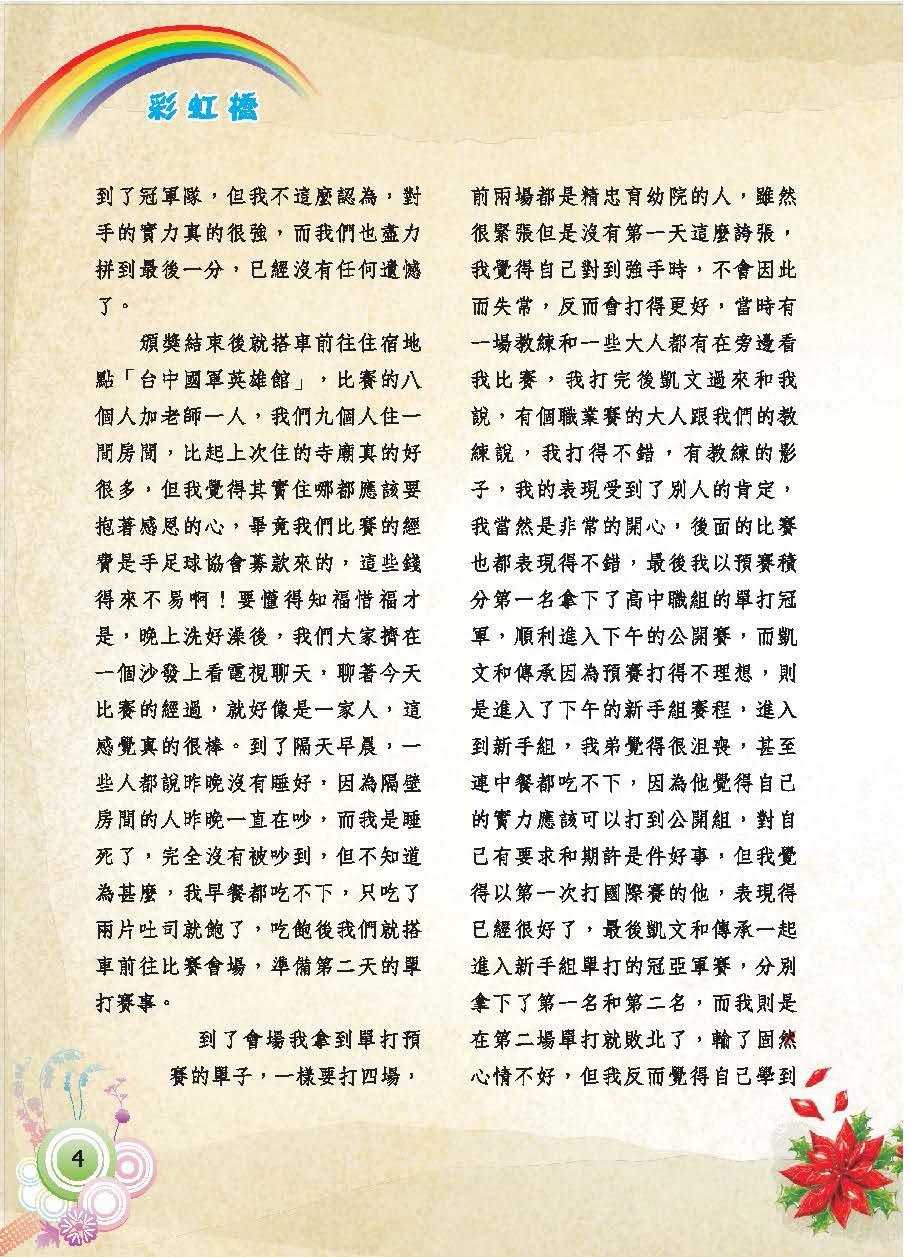 彩虹橋
到了冠軍隊，但我不這麼認為，對
手的實力真的很強，而我們也盡力
拼到最後一分，已經沒有任何遺憾
了。
頒獎結束後就搭車前往住宿地
點「台中國軍英雄館」，比賽的八
個人加老師一人，我們九個人住一
間房間，比起上次住的寺廟真的好
很多，但我覺得其實住哪都應該要
抱著感恩的心，畢竟我們比賽的經
費是手足球協會募款來的，這些錢
得來不易啊！要懂得知福惜福才
是，晚上洗好澡後，我們大家擠在
一個沙發上看電視聊天，聊著今天
比賽的經過，就好像是一家人，這
感覺真的很棒。到了隔天早晨，一
些人都說昨晚沒有睡好，因為隔壁
房間的人昨晚一直在吵，而我是睡
死了，完全沒有被吵到，但不知道
為甚麼，我早餐都吃不下，只吃了
兩片吐司就飽了，吃飽後我們就搭
車前往比賽會場，準備第二天的單
打賽事。
到了會場我拿到單打預
賽的單子，一樣要打四場，
前兩場都是精忠育幼院的人，雖然
很緊張但是沒有第一天這麼誇張，
我覺得自己對到強手時，不會因此
而失常，反而會打得更好，當時有
一場教練和一些大人都有在旁邊看
我比賽，我打完後凱文過來和我
說，有個職業賽的大人跟我們的教
練說，我打得不錯，有教練的影
子，我的表現受到了別人的肯定，
我當然是非常的開心，後面的比賽
也都表現得不錯，最後我以預賽積
分第一名拿下了高中職組的單打冠
軍，順利進入下午的公開賽，而凱
文和傳承因為預賽打得不理想，則
是進入了下午的新手組賽程，進入
到新手組，我弟覺得很沮喪，甚至
連中餐都吃不下，因為他覺得自己
的實力應該可以打到公開組，對自
己有要求和期許是件好事，但我覺
得以第一次打國際賽的他，表現得
已經很好了，最後凱文和傳承一起
進入新手組單打的冠亞軍賽，分別
拿下了第一名和第二名，而我則是
在第二場單打就敗北了，輸了固然
心情不好，但我反而覺得自己學到
4